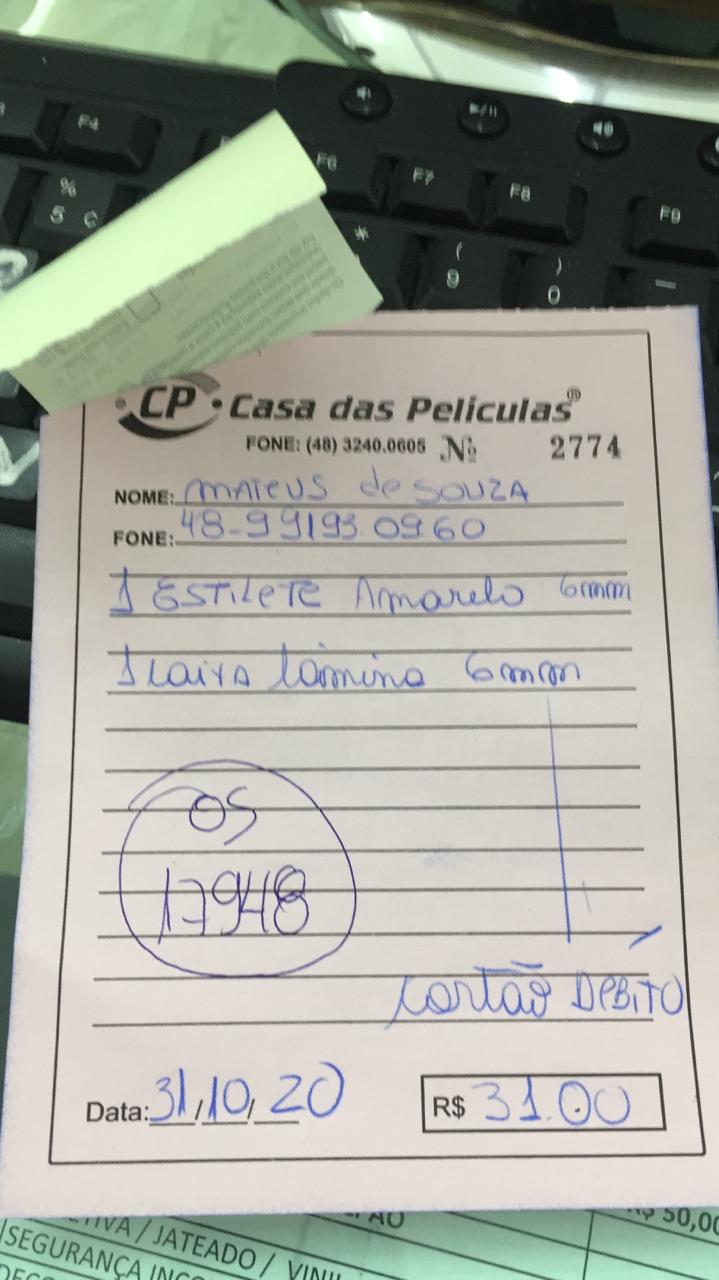 F4
F6
F7
F8
F9
%
5 €
*
(
9
)
0
CP Casa das Peliculas®
FONE: (48) 3240.0605 Nº 2774
NOME: MATEUS de SOUZA
FONE: 48-99193.0960
1 ESTILETE Amarelo 6mm
1 Caixa lâmina 6mm
OS
17948
Cartão DEBITO
Data: 31/10/20
R$ 31.00
R$ 50,00
/ JATEADO /
SEGURANÇA